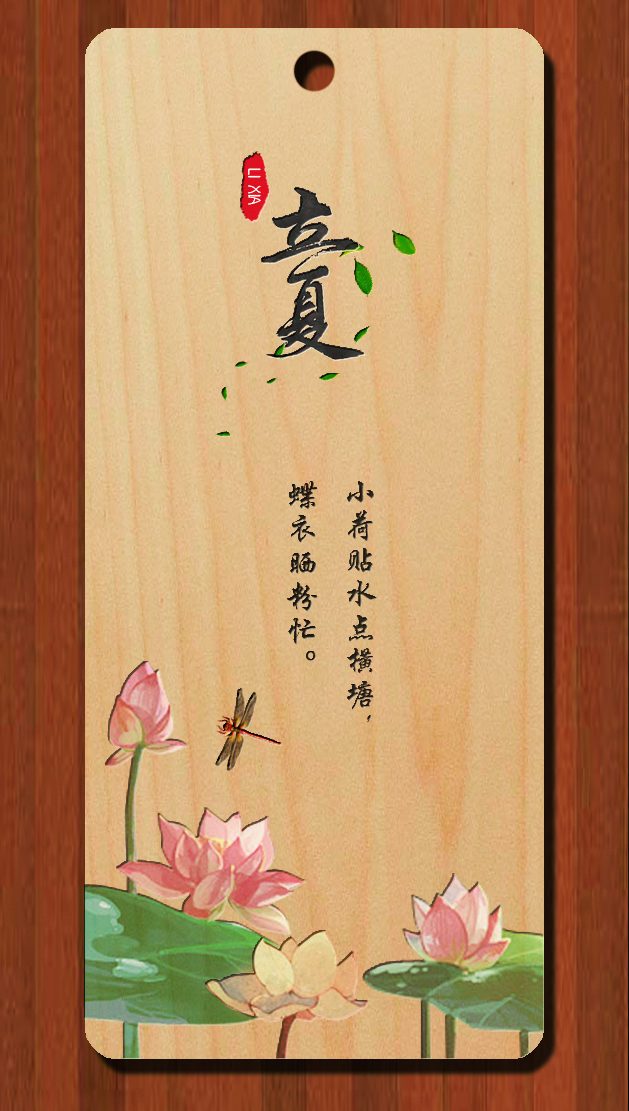 立夏
LI XIA
小荷贴水点横塘，
蝶衣晒粉忙。